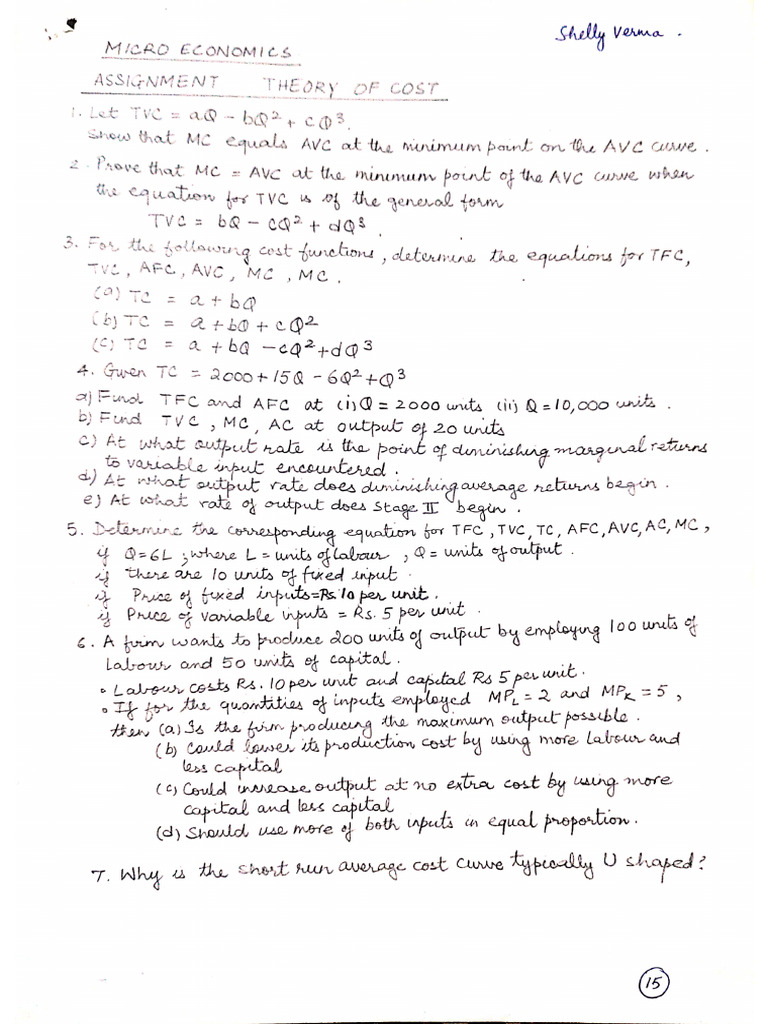 Shelly Verma .
MICRO ECONOMICS
ASSIGNMENT THEORY OF COST
1. Let TVC = aQ - bQ² + cQ³.
Show that MC equals AVC at the minimum point on the AVC curve.
2. Prove that MC = AVC at the minimum point of the AVC curve when
the equation for TVC is of the general form
TVC = bQ - cQ² + dQ³.
3. For the following cost functions, determine the equations for TFC,
TVC, AFC, AVC, MC, MC.
(a) TC = a + bQ
(b) TC = a + bQ + cQ²
(c) TC = a + bQ - cQ² + dQ³
4. Given TC = 2000 + 15Q - 6Q² + Q³
a) Find TFC and AFC at (i) Q = 2000 units (ii) Q = 10,000 units.
b) Find TVC, MC, AC at output of 20 units
c) At what output rate is the point of diminishing marginal returns
to variable input encountered.
d) At what output rate does diminishing average returns begin.
e) At what rate of output does Stage II begin.
5. Determine the corresponding equation for TFC, TVC, TC, AFC, AVC, AC, MC,
if Q=6L ; where L = units of labour , Q = units of output.
if there are 10 units of fixed input.
if Price of fixed inputs = Rs. 10 per unit.
if Price of variable inputs = Rs. 5 per unit.
6. A firm wants to produce 200 units of output by employing 100 units of
labour and 50 units of capital.
• Labour costs Rs. 10 per unit and capital Rs 5 per unit.
• If for the quantities of inputs employed MPL = 2 and MPK = 5,
then (a) Is the firm producing the maximum output possible.
(b) Could lower its production cost by using more labour and
less capital
(c) Could increase output at no extra cost by using more
capital and less capital
(d) Should use more of both inputs in equal proportion.
7. Why is the short run average cost curve typically U shaped?
15